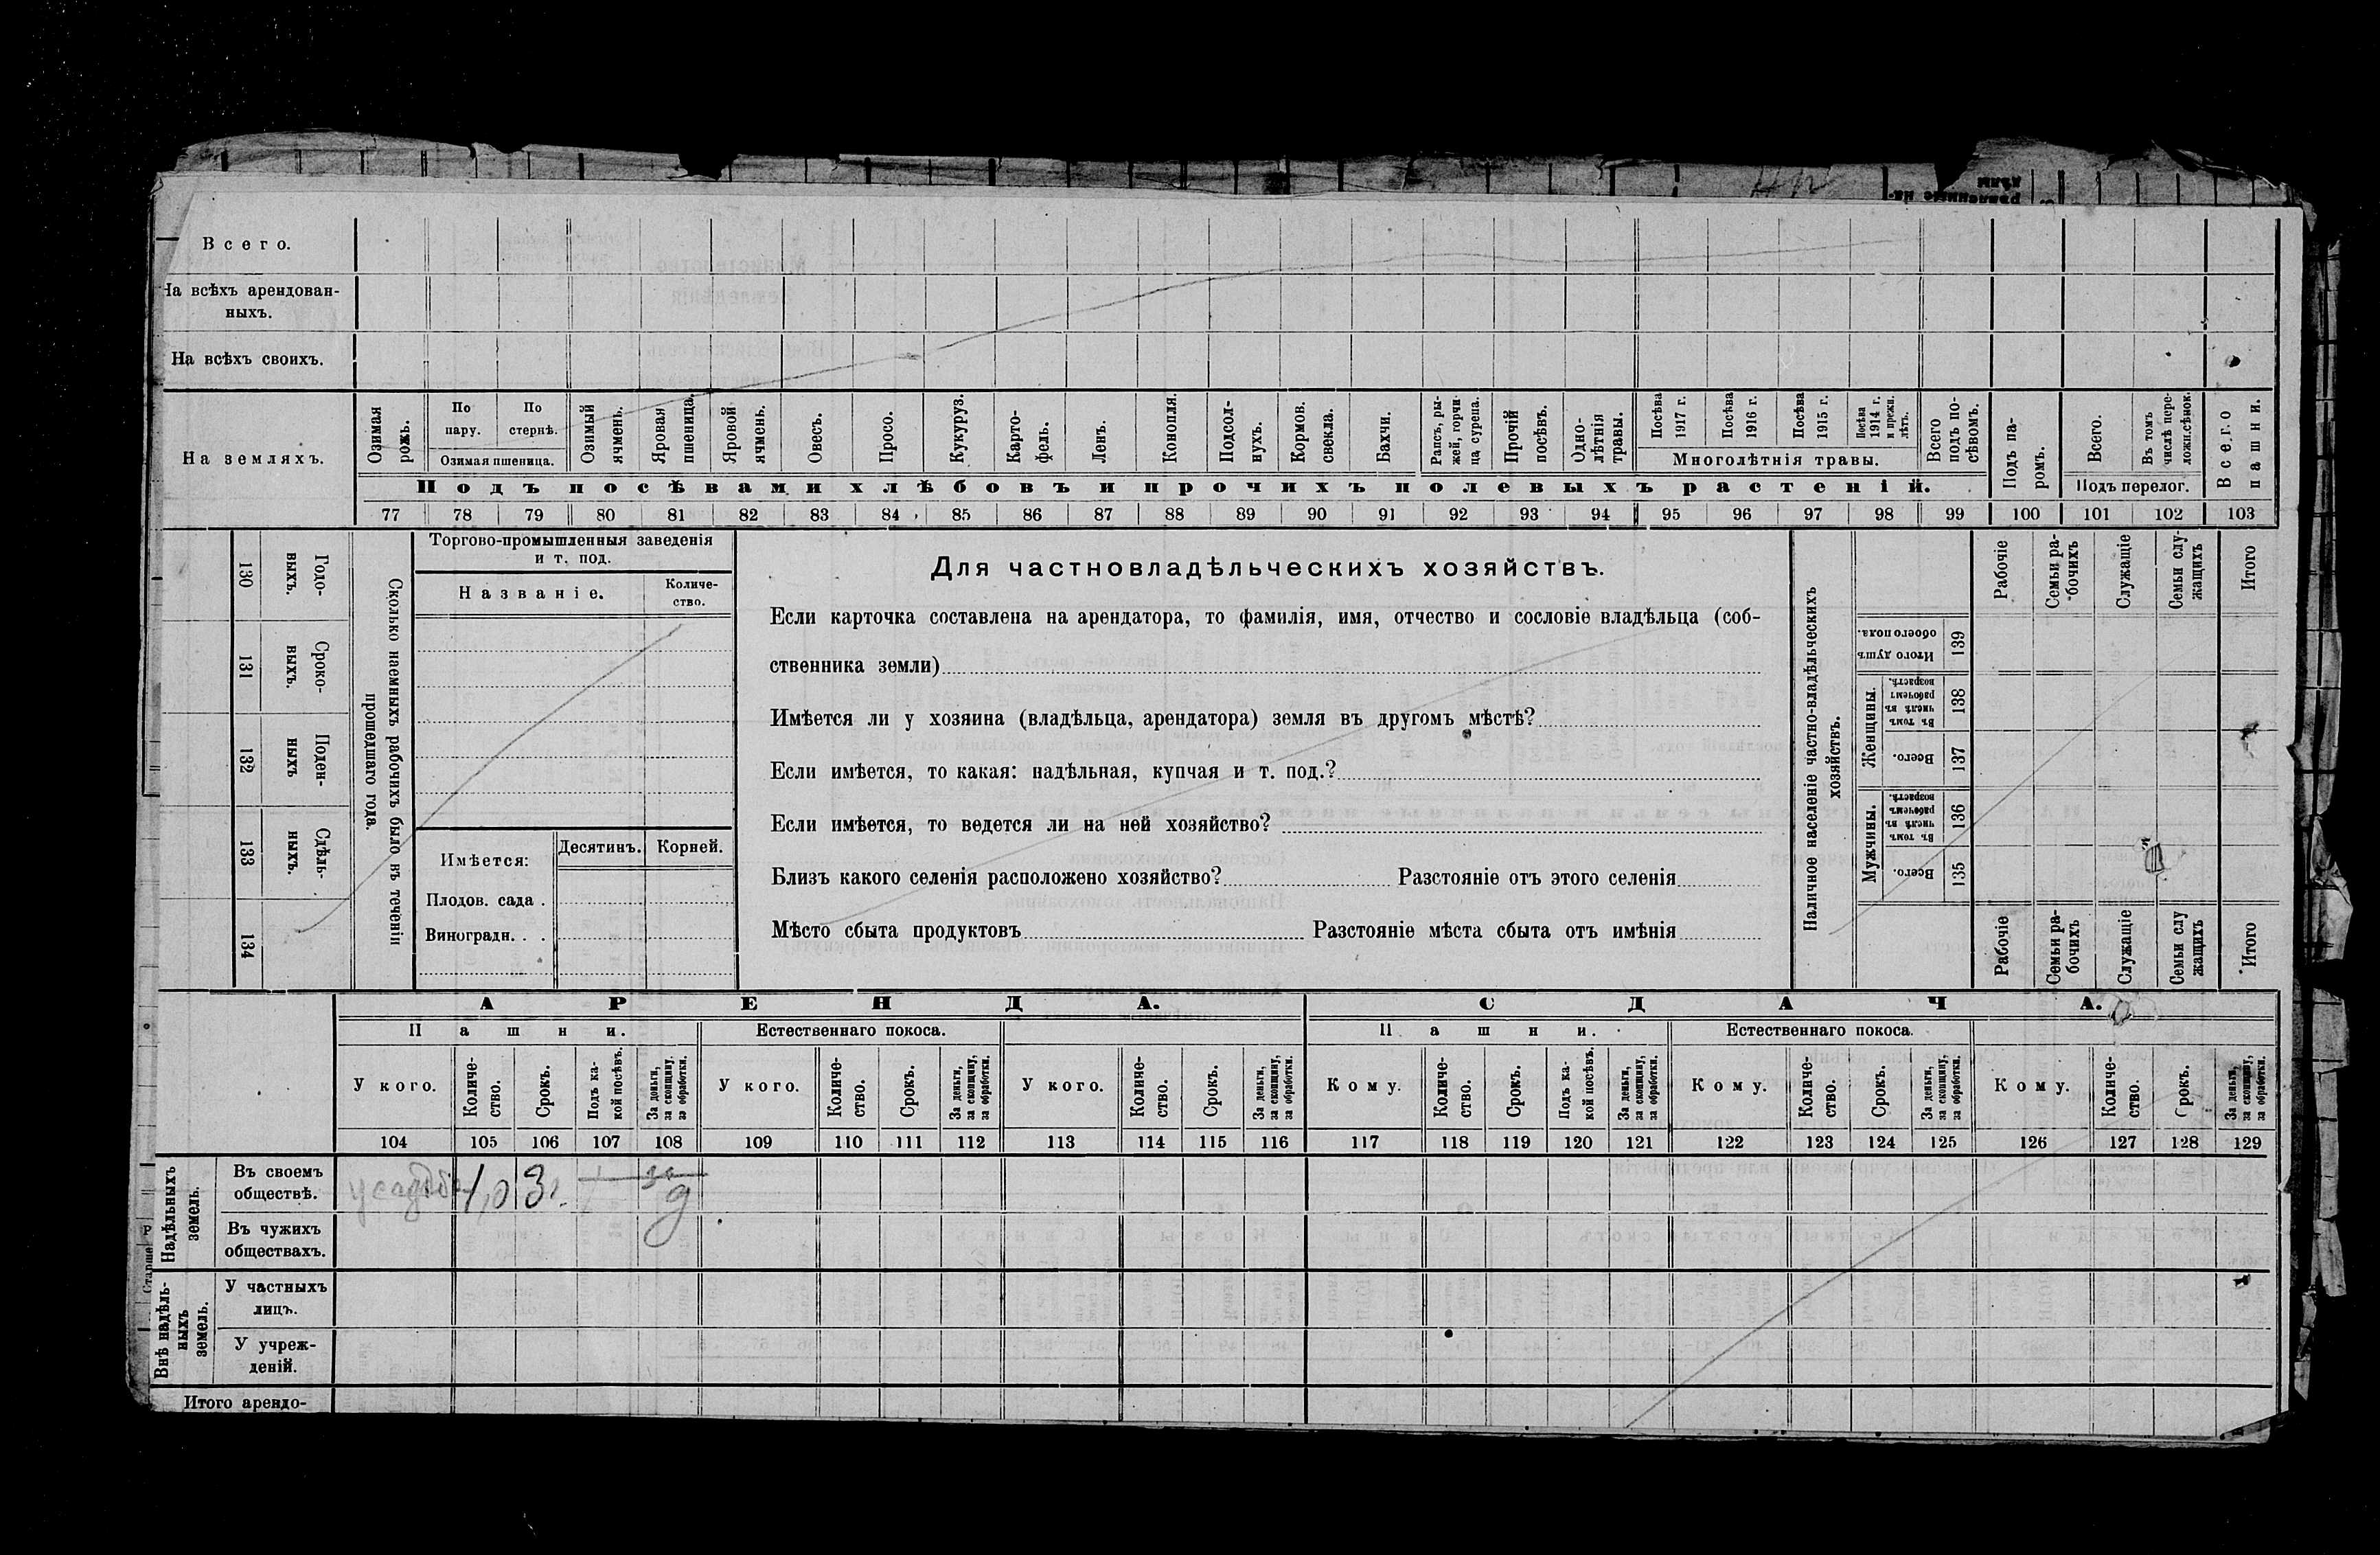 Всего.
На всѣхъ арендован-
ныхъ.
На всѣхъ своихъ.
На земляхъ.
Озимая рожь.
По пару.
По стернѣ.
Озимая пшеница.
Озимый ячмень.
Яровая пшеница.
Яровой ячмень.
Овесъ.
Просо.
Кукуруз.
Карто-
фель.
Ленъ.
Конопля.
Подсол-
нухъ.
Кормов. свекла.
Бахчи.
Рапсъ, ры-
жей, горчи-
ца, сурепа.
Прочій посѣвъ.
Одно-
лѣтнія травы.
Посѣва 1917 г.
Посѣва 1916 г.
Посѣва 1915 г.
Посѣва 1914 г. и прежн. лѣтъ.
Многолѣтнія травы.
Всего подъ по-
сѣвомъ.
Подъ па-
ромъ.
Всего.
Въ томъ числѣ пере-
ложн.сѣнок.
Подъ перелог.
Всего пашни.
Подъ посѣвами хлѣбовъ и прочихъ полевыхъ растеній.
77 78 79 80 81 82 83 84 85 86 87 88 89 90 91 92 93 94 95 96 97 98 99 100 101 102 103
130 Годо-
выхъ.
131 Сроко-
выхъ.
132 Поден-
ныхъ
133 Сдѣль-
ныхъ.
134
Сколько наемныхъ рабочихъ было въ теченіи
прошедшаго года.
Торгово-промышленныя заведенія
и т. под.
Названіе.
Количе-
ство.
Имѣется:
Десятинъ.
Корней.
Плодов. сада .
Виноградн. . .
Для частновладѣльческихъ хозяйствъ.
Если карточка составлена на арендатора, то фамилія, имя, отчество и сословіе владѣльца (соб-
ственника земли)
Имѣется ли у хозяина (владѣльца, арендатора) земля въ другомъ мѣстѣ?
Если имѣется, то какая: надѣльная, купчая и т. под.?
Если имѣется, то ведется ли на ней хозяйство?
Близъ какого селенія расположено хозяйство? Разстояніе отъ этого селенія
Мѣсто сбыта продуктовъ Разстояніе мѣста сбыта отъ имѣнія
Наличное населеніе частно-владѣльческихъ
хозяйствъ.
Рабочіе
Семьи ра-
бочихъ
Служащіе
Семьи слу-
жащихъ
Итого
Итого душъ обоего пола. 139
Женщины.
Въ томъ числѣ въ рабочемъ возрастѣ. 138
Всего. 137
Мужчины.
Въ томъ числѣ въ рабочемъ возрастѣ. 136
Всего. 135
Рабочіе
Семьи ра-
бочихъ
Служащіе
Семьи слу
жащихъ
Итого
АРЕНДА.
СДАЧА.
Пашни.
Естественнаго покоса.
Пашни.
Естественнаго покоса.
У кого.
Количе-
ство.
Срокъ.
Подъ ка-
кой посѣвъ.
За деньги,
за скопщину,
за обработки.
У кого.
Количе-
ство.
Срокъ.
За деньги,
за скопщину,
за обработки.
У кого.
Количе-
ство.
Срокъ.
За деньги,
за скопщину,
за обработки.
Кому.
Количе-
ство.
Срокъ.
Подъ ка-
кой посѣвъ.
За деньги,
за скопщину,
за обработки.
Кому.
Количе-
ство.
Срокъ.
За деньги,
за скопщину,
за обработки.
Кому.
Количе-
ство.
Срокъ.
За деньги,
за скопщину,
за обработки.
104 105 106 107 108 109 110 111 112 113 114 115 116 117 118 119 120 121 122 123 124 125 126 127 128 129
Надѣльныхъ
земель.
Въ своемъ
обществѣ.
усадьба 1,0 3г. д
Въ чужихъ
обществахъ.
Внѣ надѣль-
ныхъ
земель.
У частныхъ
лицъ.
У учреж-
деній.
Итого арендо-
Старше